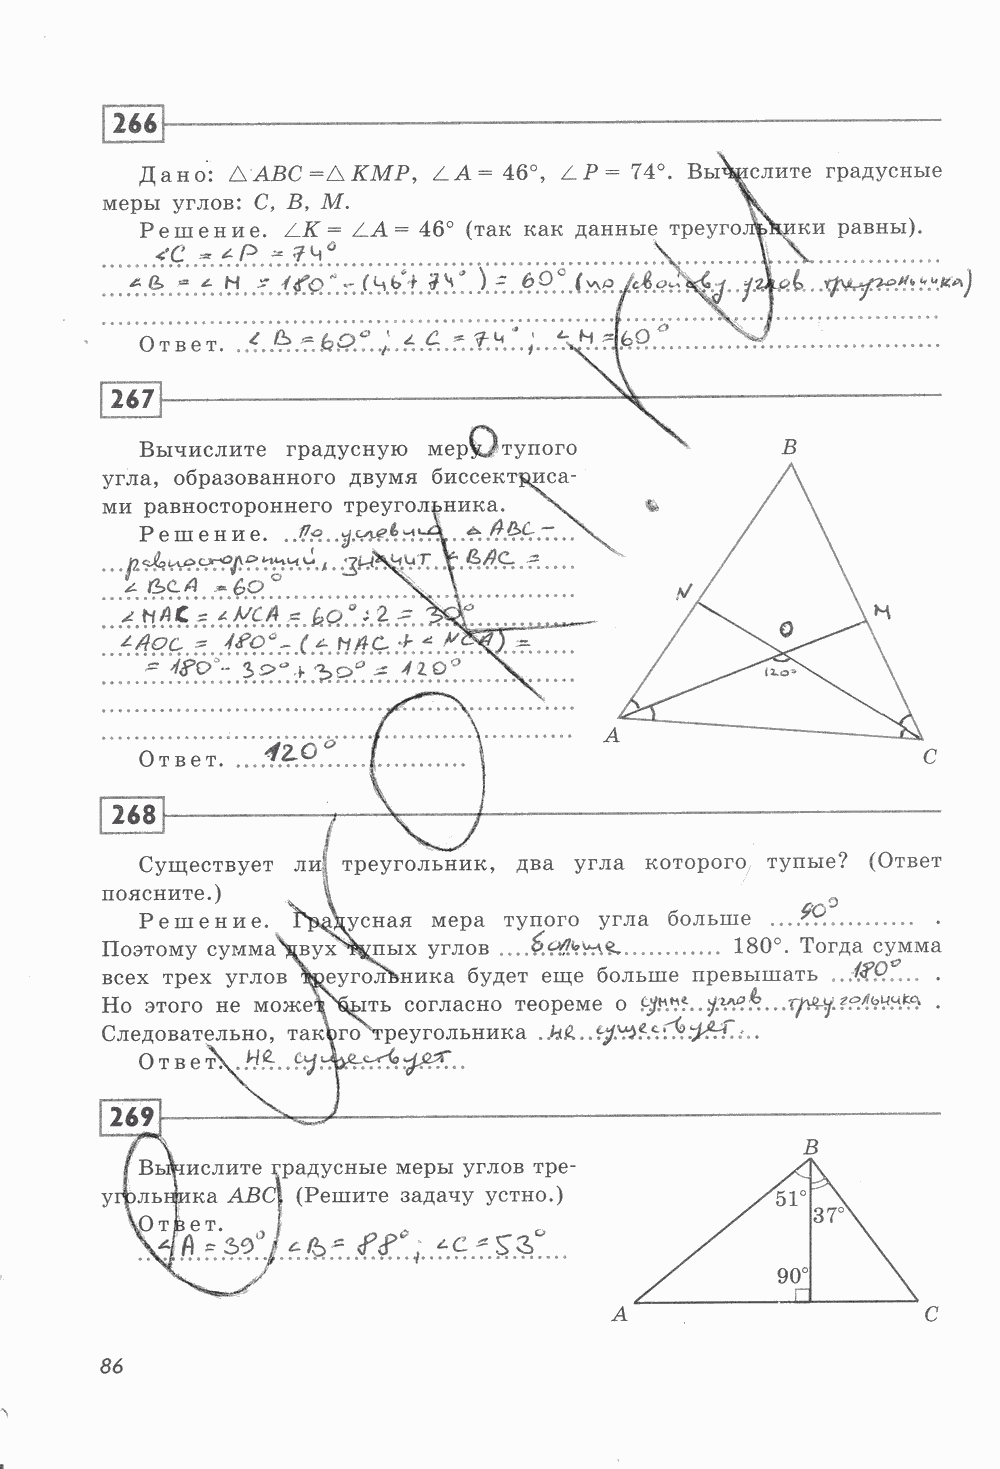 266
Дано: △ABC=△KMP, ∠A= 46°, ∠P= 74°. Вычислите градусные
меры углов: C, B, M.
Решение. ∠K= ∠A= 46° (так как данные треугольники равны).
∠C = ∠P = 74°
∠B = ∠M = 180° - (46°+ 74°) = 60° (по свойству углов треугольника)
Ответ. ∠B = 60°; ∠C = 74°; ∠M = 60°
267
Вычислите градусную меру тупого
угла, образованного двумя биссектриса-
ми равностороннего треугольника.
Решение. По условию △ABC –
равносторонний, значит ∠BAC =
∠BCA = 60°
∠MAC = ∠NCA = 60° : 2 = 30°
∠AOC = 180° - (∠MAC + ∠NCA) =
= 180° - 30° + 30° = 120°
Ответ. 120°
B
N
M
O
120°
A
C
268
Существует ли треугольник, два угла которого тупые? (Ответ
поясните.)
Решение. Градусная мера тупого угла больше 90° .
Поэтому сумма двух тупых углов больше 180°. Тогда сумма
всех трех углов треугольника будет еще больше превышать 180° .
Но этого не может быть согласно теореме о сумме углов треугольника .
Следовательно, такого треугольника не существует.
Ответ. не существует
269
Вычислите градусные меры углов тре-
угольника ABC. (Решите задачу устно.)
Ответ.
∠A = 39°; ∠B = 88°; ∠C = 53°
B
51°
37°
90°
A
C
86